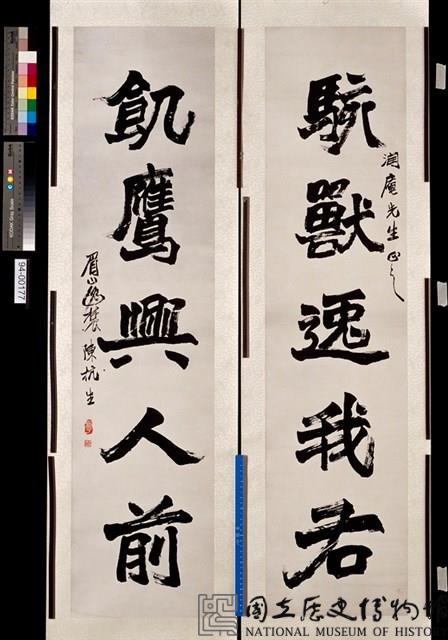 駭獸逸我右
潤庵先生正之
飢鷹興人前
陳杭生
94-00177
國立歷史博物館
NATIONAL MUSEUM OF HISTORY